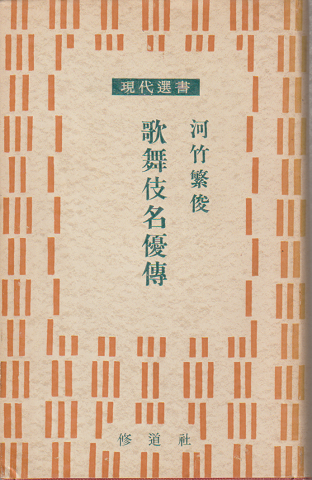 現代選書
河竹繁俊
歌舞伎名優傳
修道社